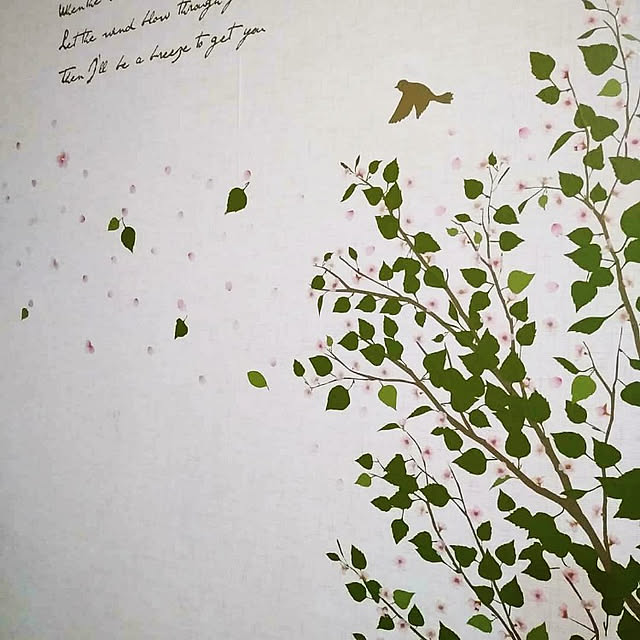 Let the wind blow through
Then I'll be a breeze to get you